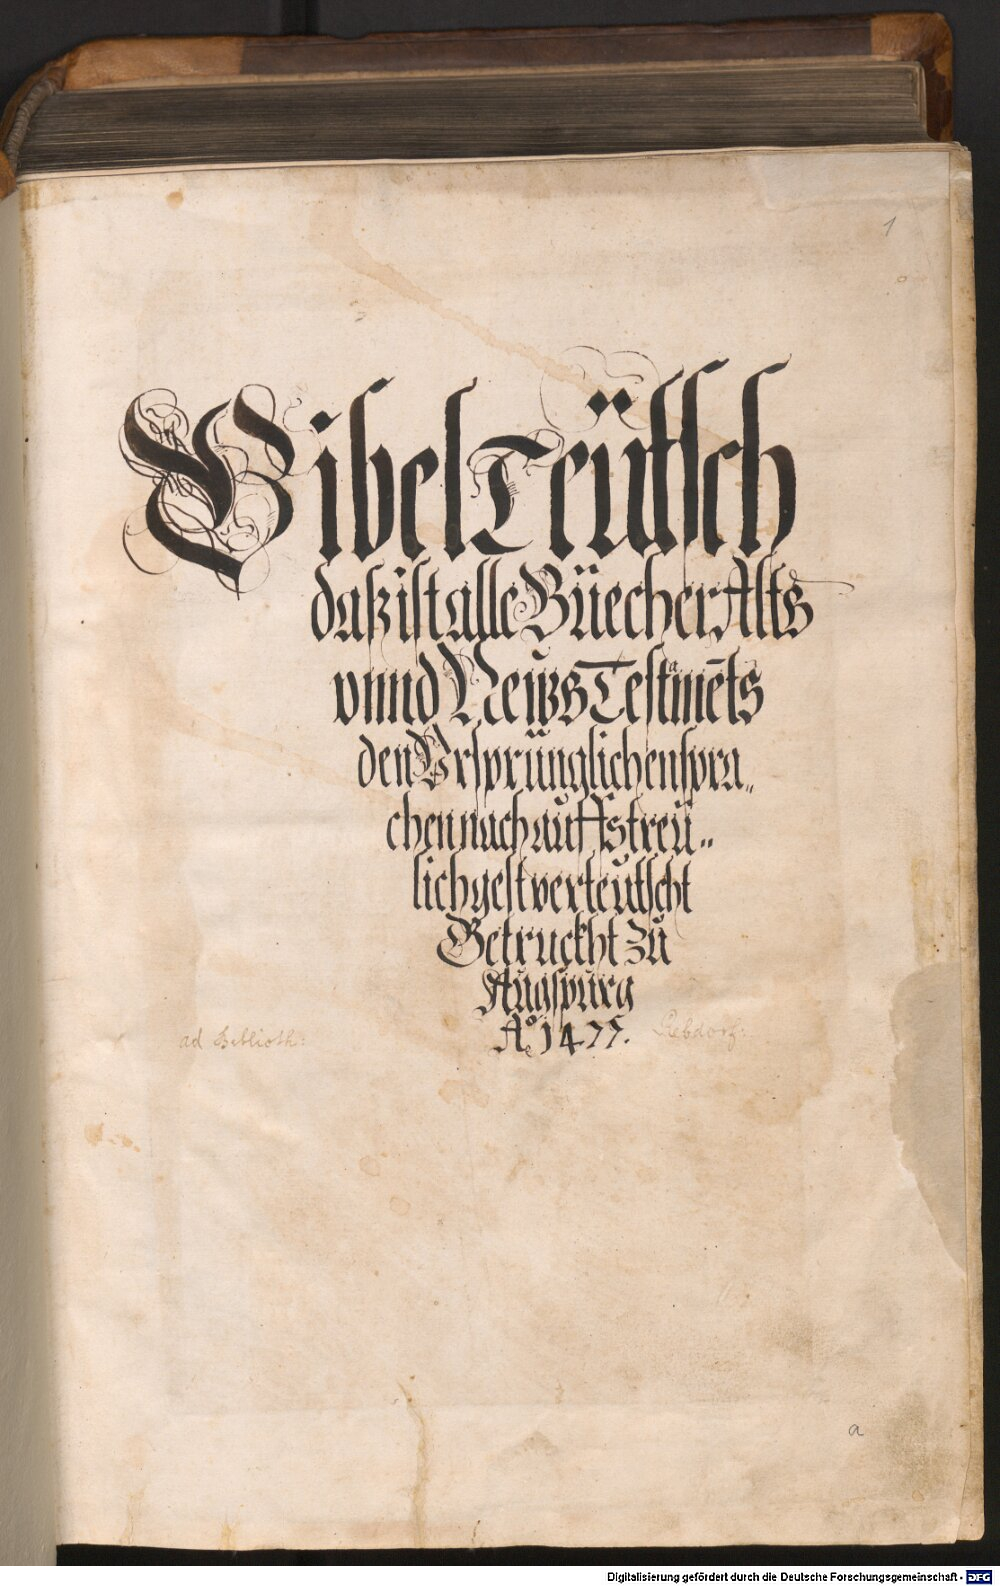 1
Bibel Teütsch
daß ist alle Büecher Alts
vnnd News Testamēts
den Vrsprünglichen spra„
chen nach auffs treü„
lichgest verteutscht
Getruckht zu
Augspurg
Aº 1477.
ad Biblioth: Rebdorf:
a
Digitalisierung gefördert durch die Deutsche Forschungsgemeinschaft - DFG